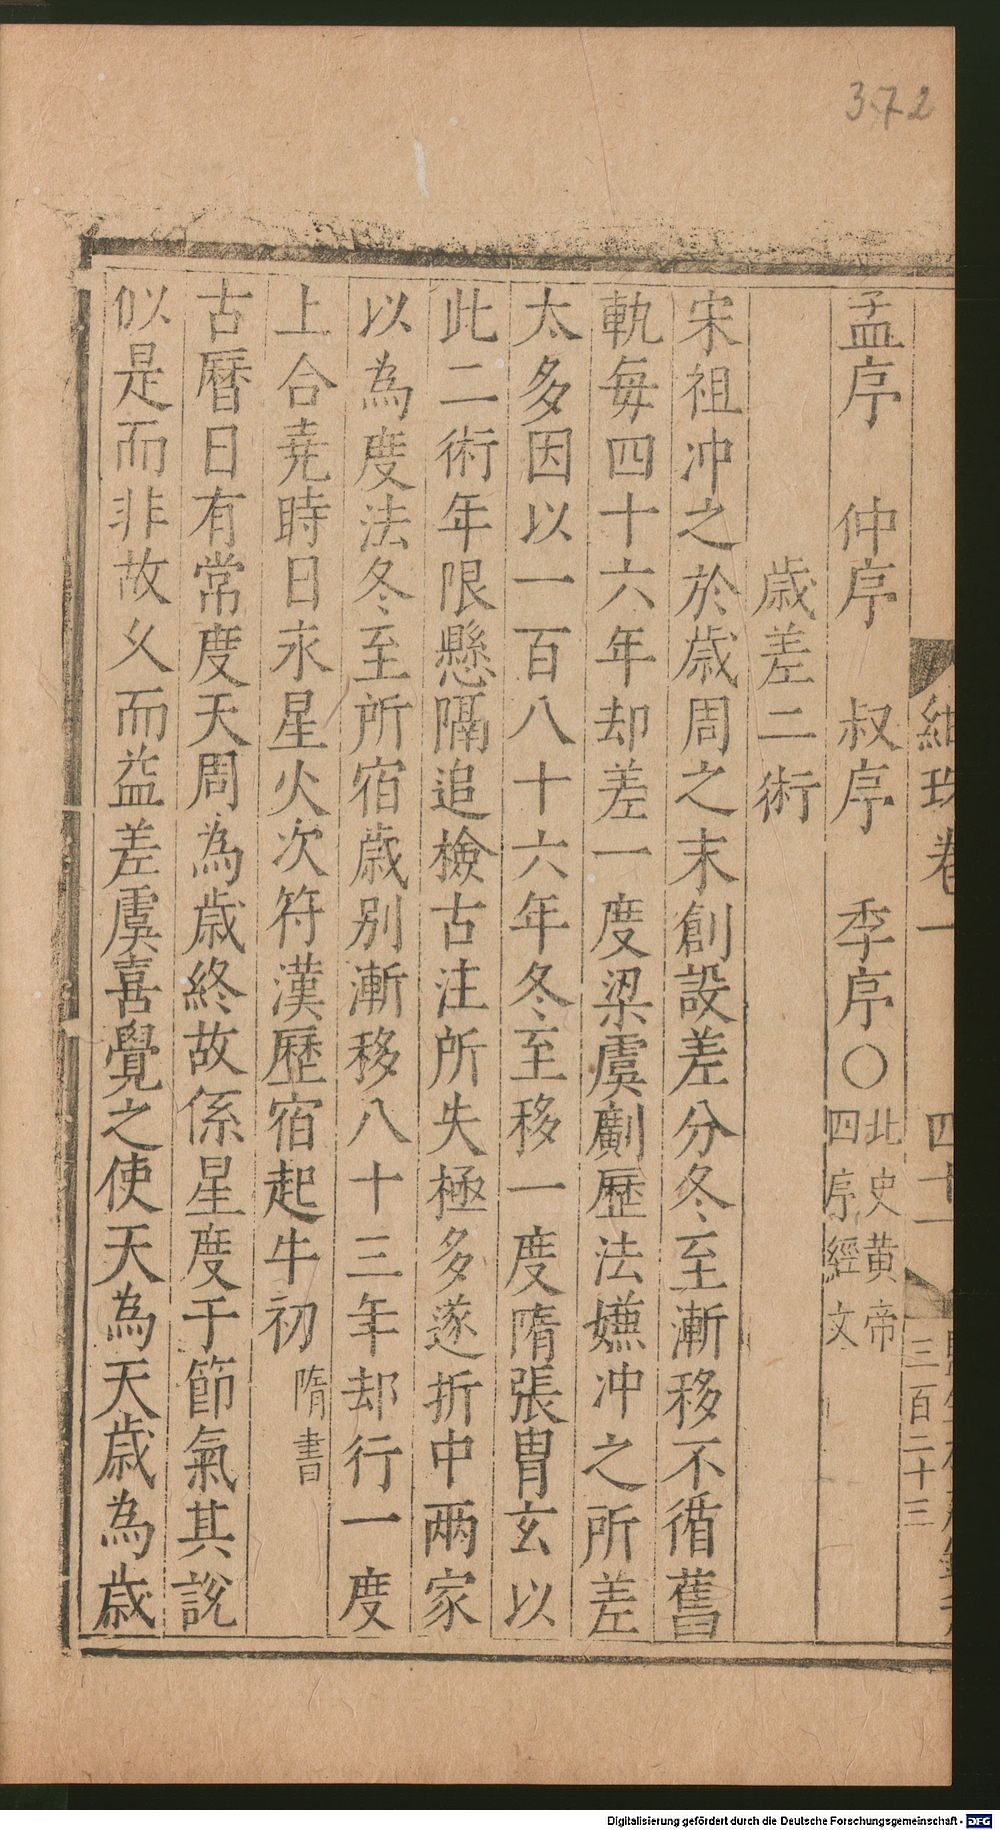 372
紺珠卷一 四十一
三百二十三
孟序 仲序 叔序 季序○北史黄帝四序經文
歲差二術
宋祖冲之於歲周之末創設差分冬至漸移不循舊
軌每四十六年却差一度梁虞𠠎歷法嫌冲之所差
太多因以一百八十六年冬至移一度隋張胄玄以
此二術年限懸隔追檢古注所失極多遂折中兩家
以為度法冬至所宿歲别漸移八十三年却行一度
上合堯時日永星火次符漢歷宿起牛初隋書
古曆日有常度天周為歲終故係星度于節氣其說
似是而非故久而益差虞喜覺之使天為天歲為歲
Digitalisierung gefördert durch die Deutsche Forschungsgemeinschaft - DFG